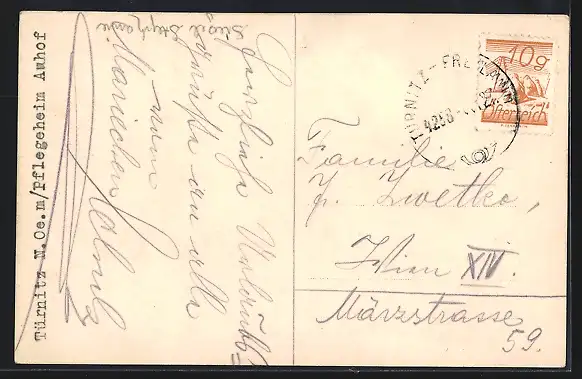 Türnitz N.Oe.m/Pflegeheim Auhof
Herzliche Urlaubs
grüße an alle
von
Mariechen
10g
Österreich
TÜRNITZ-FREILAND
Familie
J. Zwetko,
Wien XIV.
Märzstrasse
59.